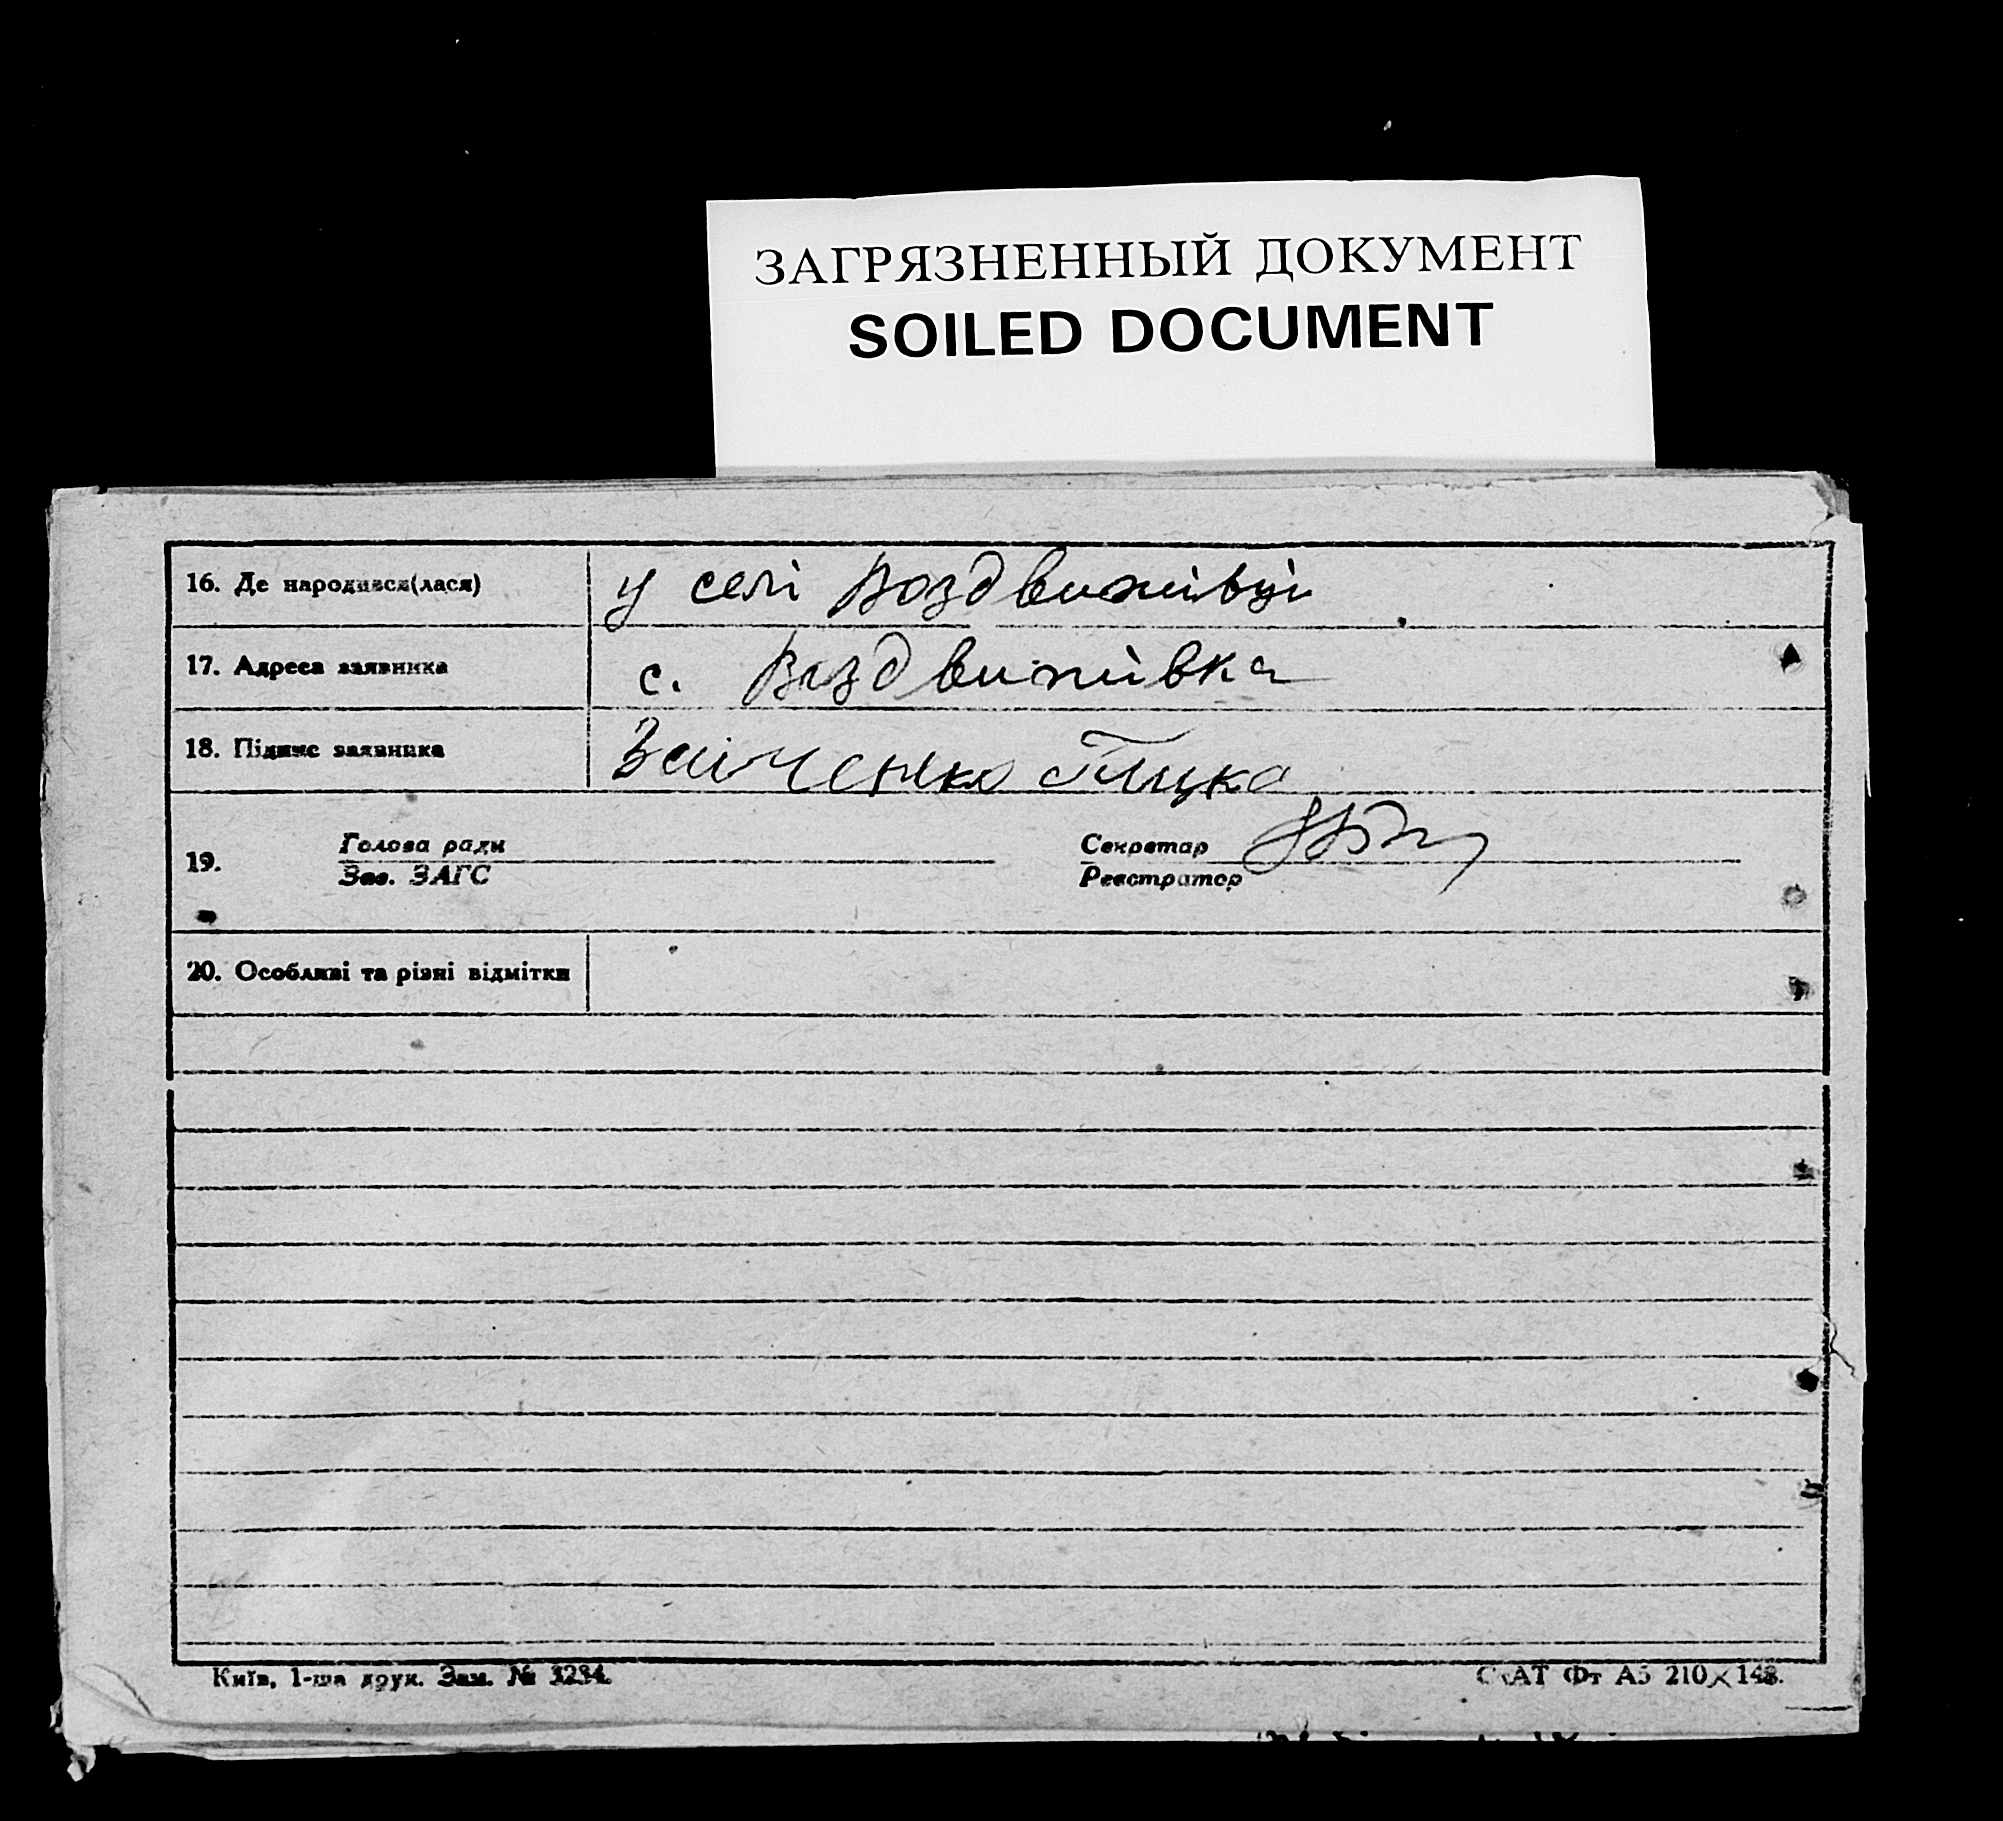 ЗАГРЯЗНЕННЫЙ ДОКУМЕНТ
SOILED DOCUMENT
16. Де народився(лася) у селі Воздвижівці
17. Адреса заявника с. Воздвижівка
18. Підпис заявника Заіченко
19. Голова ради Секретар
Зав. ЗАГС Реєстратор
20. Особливі та різні відмітки
Київ, 1-ша друк. Зам. № 3234.
Фт А5 210×148.